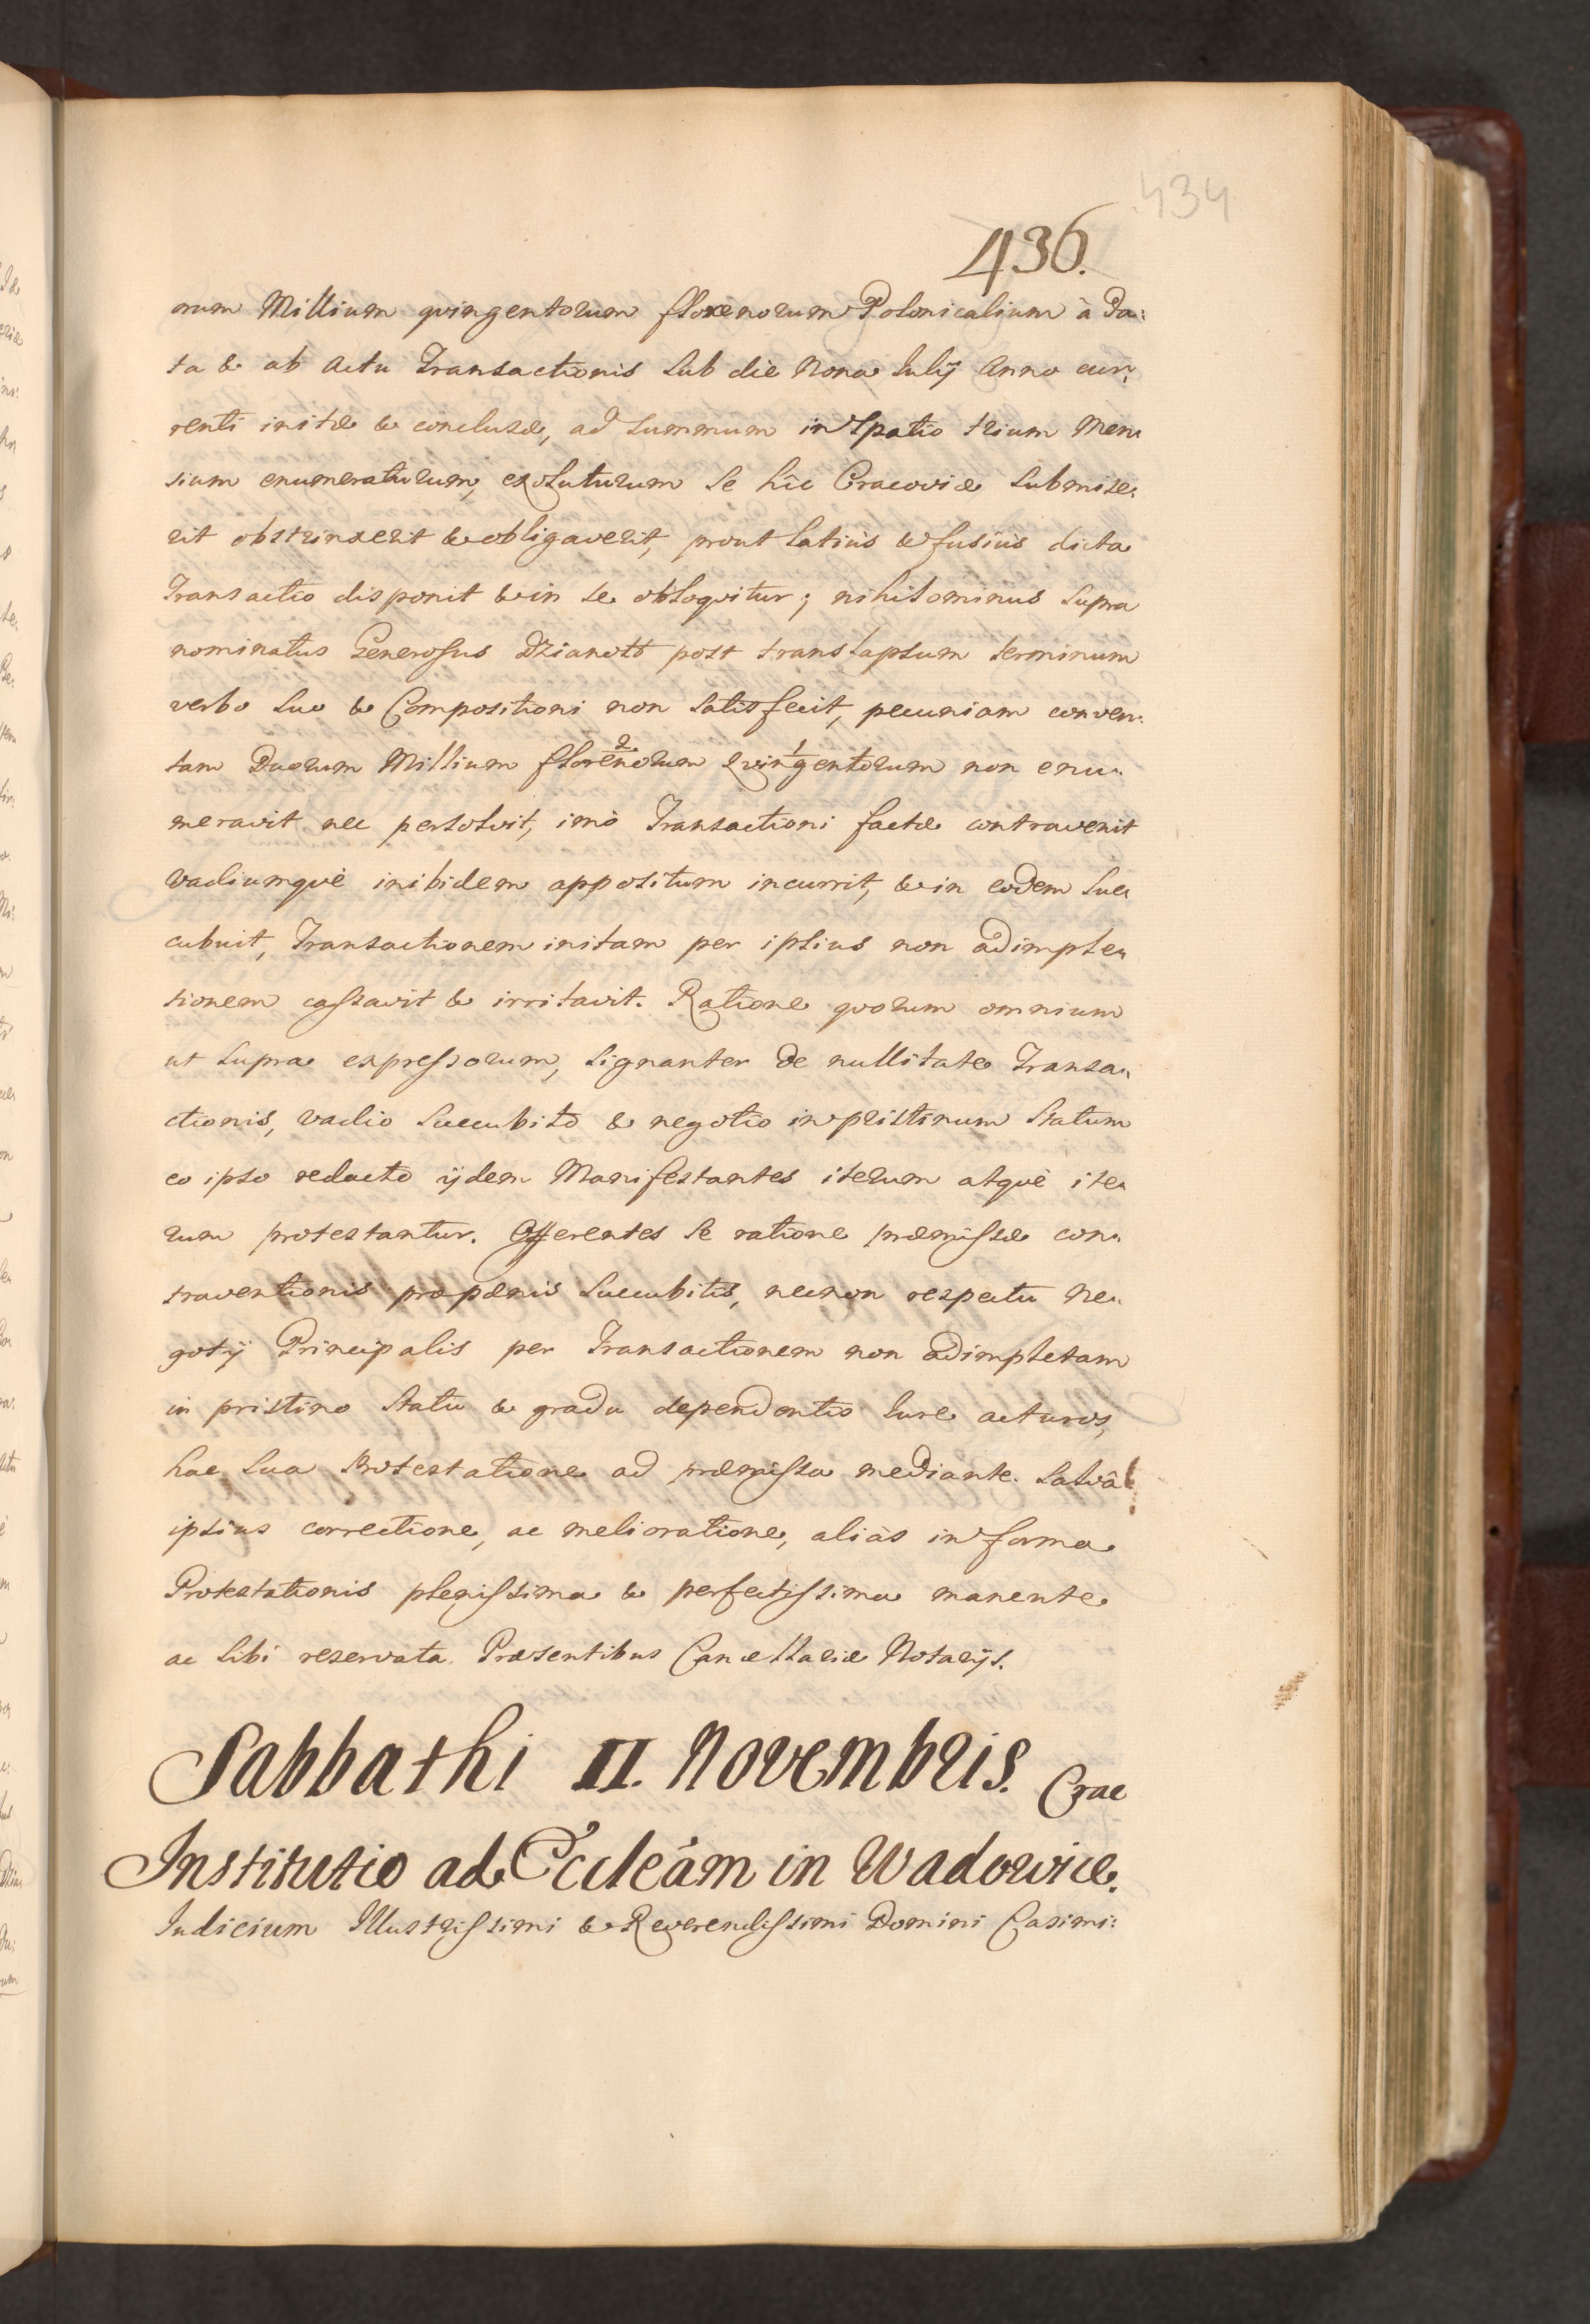 434
436.
rum Millium qvingentorum florenorum Polonicalium à Da:
ta & ab Actu Transactionis sub die Nona Iulij Anno cur,
renti initæ & conclusæ, ad summum in spatio trium Men,
sium enumeraturum, exoluturum se hîc Cracoviæ submise,
rit obstrinxerit & obligaverit, prout latiùs & fusiùs dicta
Transactio disponit & in se obloqvitur; nihilominus supra
nominatus Generosus Dzianott post translapsum terminum
verbo suo & Compositioni non satisfecit, pecuniam conven,
tam Duorum Millium florenorum 2 qvingentorum 1 non enu,
meravit nec persolvit, imò Transactioni factæ contravenit
vadiumqvè inibidem appositum incurrit, & in eodem suc,
cubuit, Transactionem initam per ipsius non adimple,
tionem cassavit & irritavit. Ratione qvorum omnium
ut supra expressorum, signanter de nullitate Transa,
ctionis, vadio succubito & negotio in pristinum statum
eo ipso redacto ijdem Manifestantes iterum atqvè ite,
rum protestantur. Offerentes se ratione præmissæ con,
traventionis pro pænis succubitis, necnon respectu Ne,
gotij Principalis per Transactionem non adimpletam
in pristino statu & gradu dependentis Iure acturos,
hac sua Protestatione ad præmissa mediante. Salvâ
ipsius correctione, ac melioratione, aliàs in forma
Protestationis plenissima & perfectissima manente
ac sibi reservata. Præsentibus Cancellariæ Notarijs.
Sabbathi II. Novembris. Crac
Institutio ad Eccleam in Wadowice.
Iudicium Illustrissimi & Reverendissimi Domini Casimi: